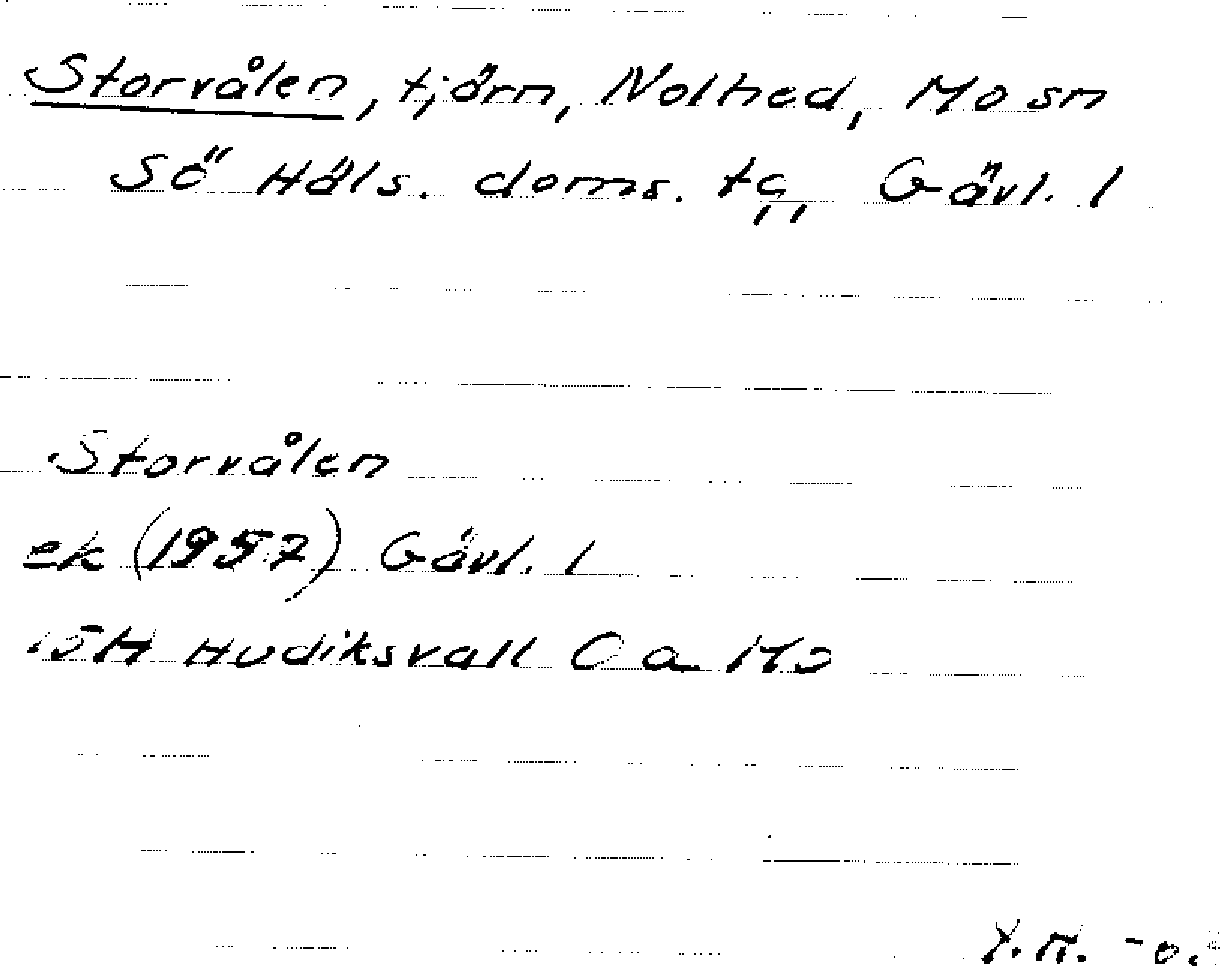 Storvålen, tjärn, Nolhed, Mo sn
Sö Häls. doms. tg, Gävl. l
Storvålen
ek (1957) Gävl. l
15H Hudiksvall 0a Mo